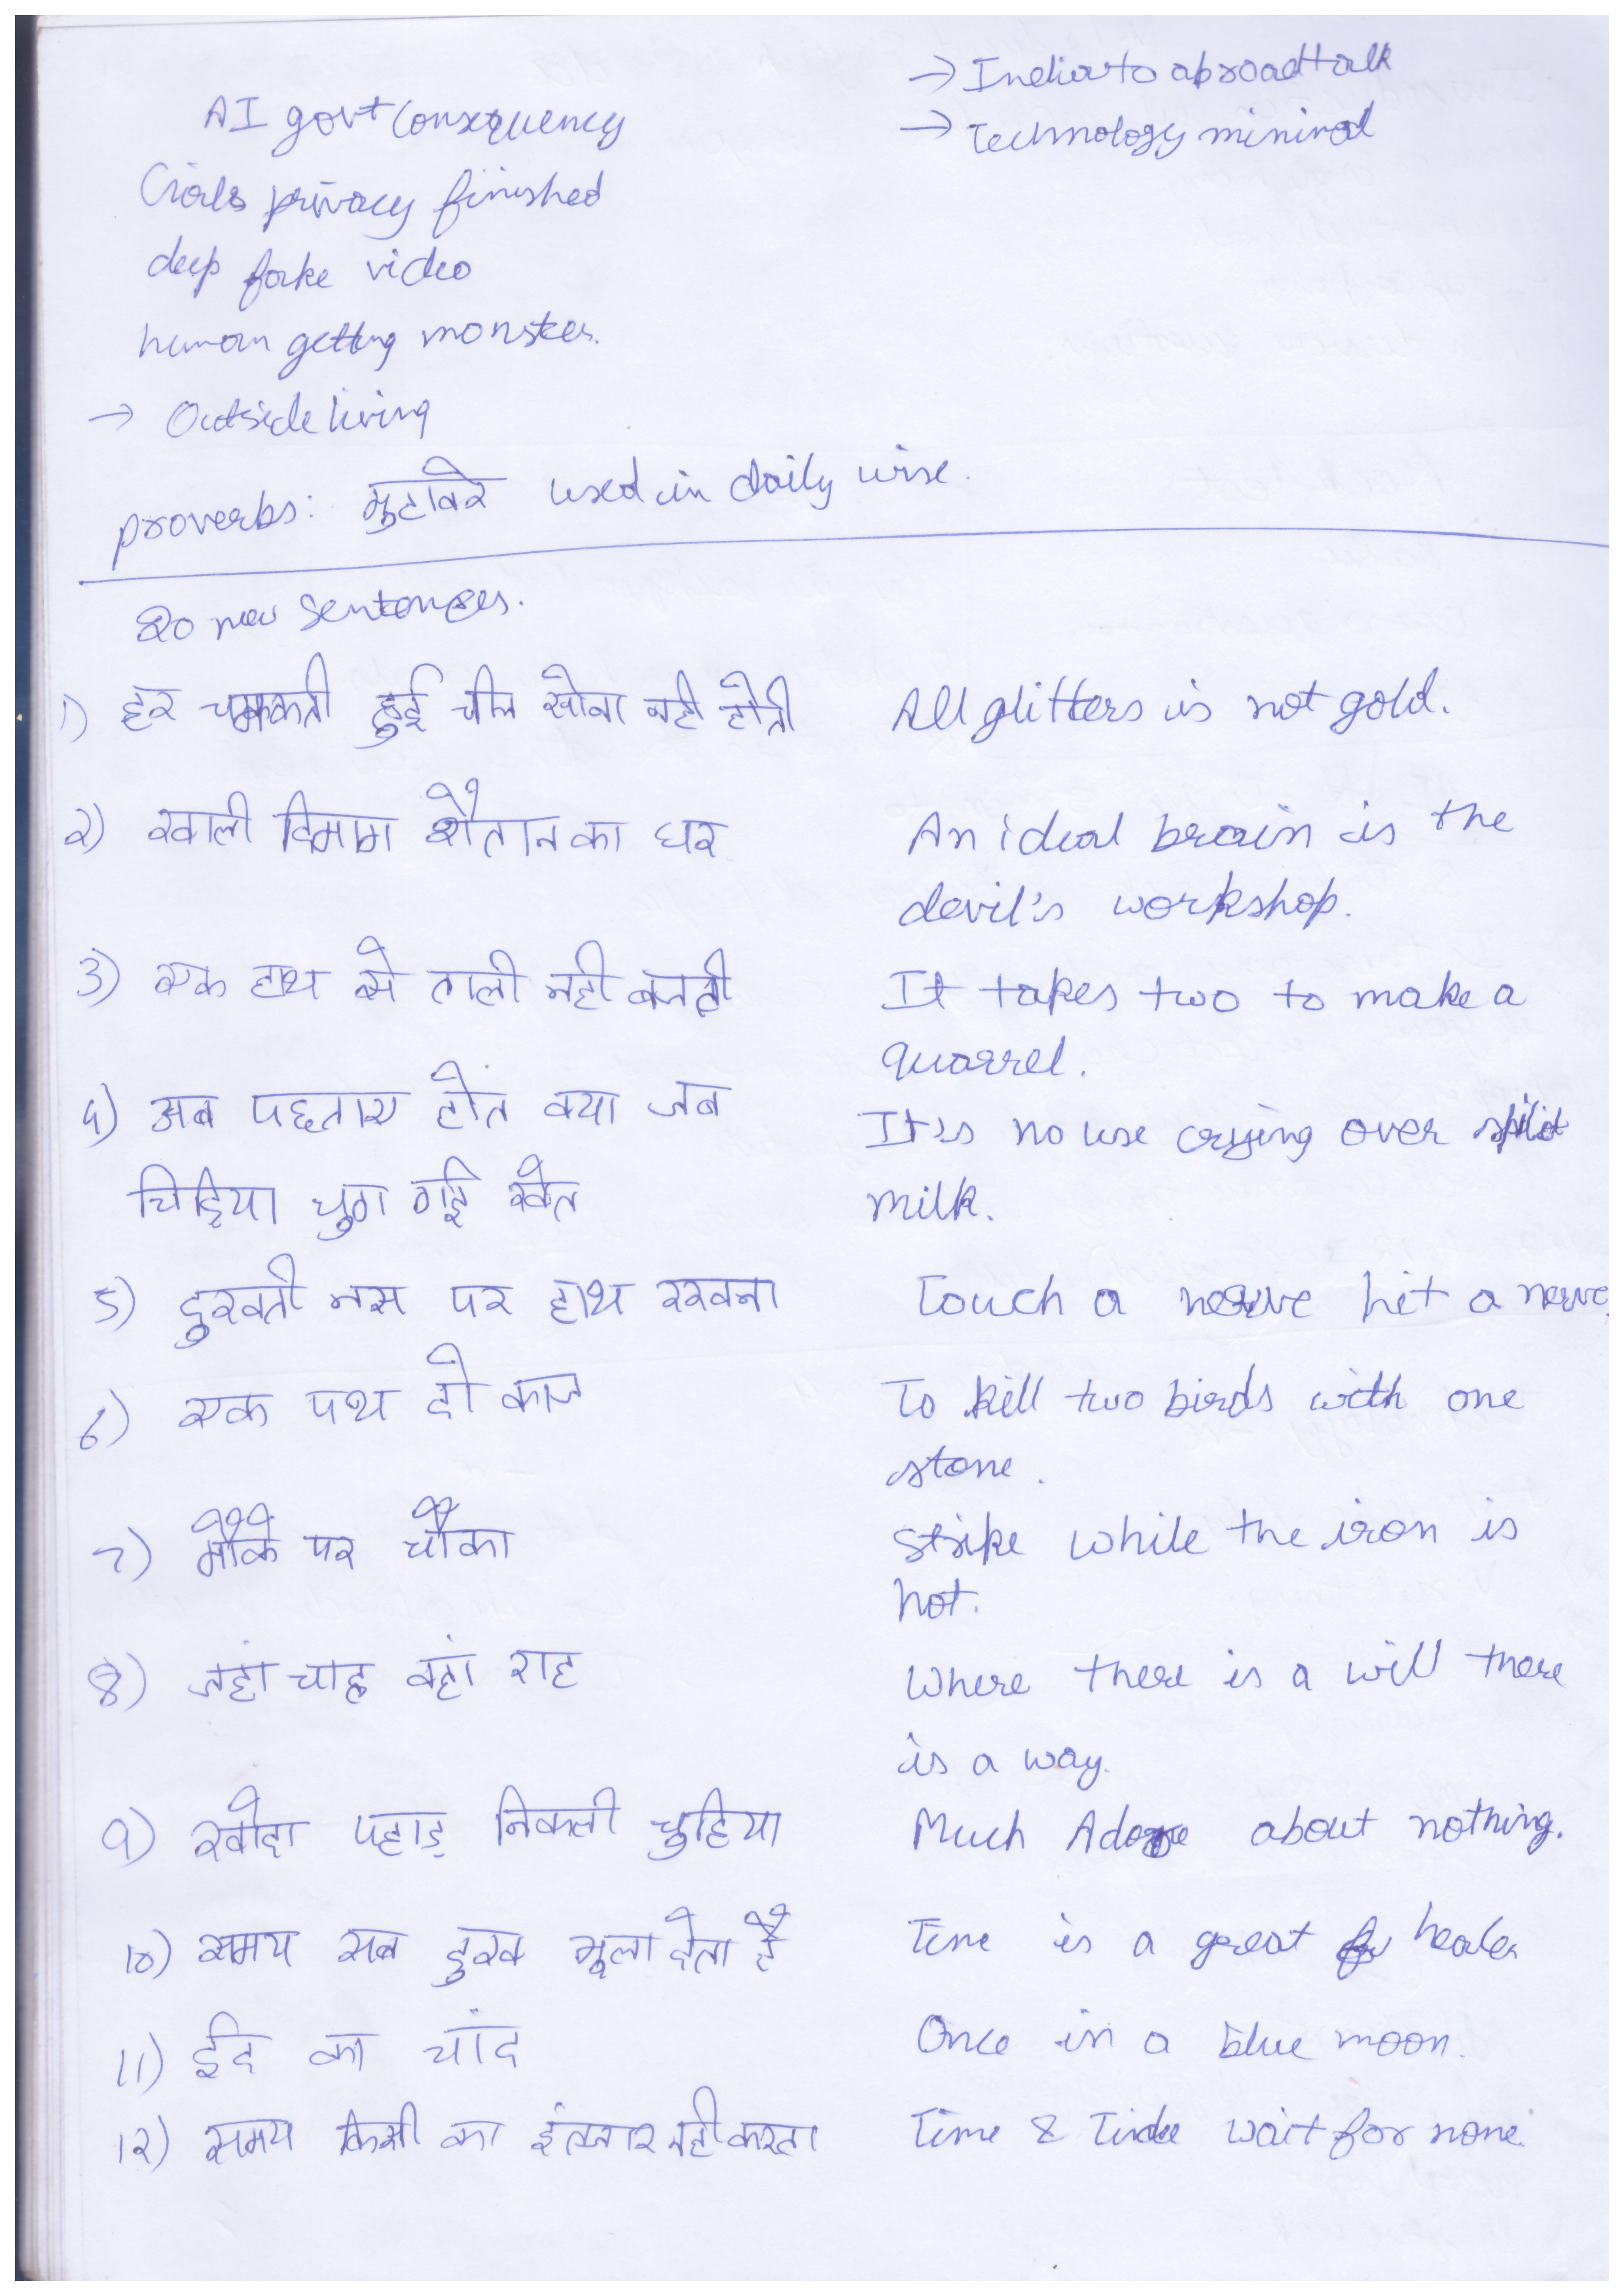 → India to abroad talk
AI govt Consequency
→ Technology minined
Girls privacy finished
deep fake video
human getting monster.
→ Outside living
proverbs: मुहावरे used in daily wise.
20 new sentences.
1) हर चमकती हुई चीज सोना नही होती All glitters is not gold.
२) खाली दिमाग शैतान का घर An ideal brain is the
devil's workshop.
3) एक हाथ से ताली नही बजती It takes two to make a
quarrel.
4) अब पछताए होत क्या जब It's no use crying over spilit
चिड़िया चुग गई खेत milk.
5) दुखती नस पर हाथ रखना Touch a nerve hit a nerve.
6) एक पथ दो काज To kill two birds with one
stone.
7) मौके पर चौका Strike while the iron is
hot.
8) जहां चाह वहां राह Where there is a will there
is a way.
9) खोदा पहाड़ निकली चुहिया Much Adoe about nothing.
10) समय सब दुख भूला देता है Time is a great healer
11) ईद का चांद Once in a blue moon.
1२) समय किसी का इंतजार नही करता Time & Tide wait for none.